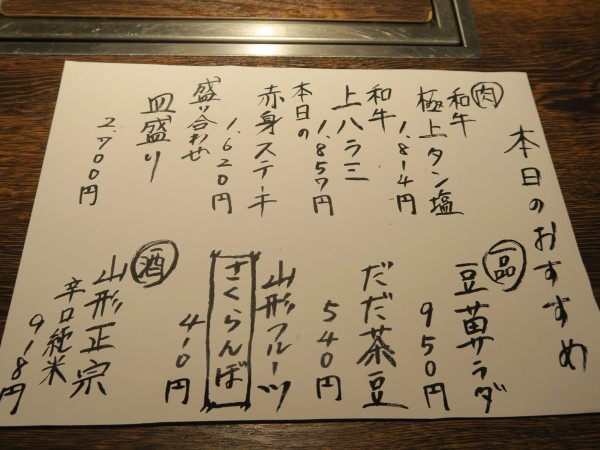 本日のおすすめ
肉
和牛
極上タン塩
1,814円
和牛
上ハラミ
1,857円
本日の
赤身ステーキ
1,620円
盛り合わせ
四皿盛り
2,700円
一品
豆苗サラダ
950円
だだ茶豆
540円
山形フルーツ
さくらんぼ
410円
酒
山形正宗
辛口純米
918円